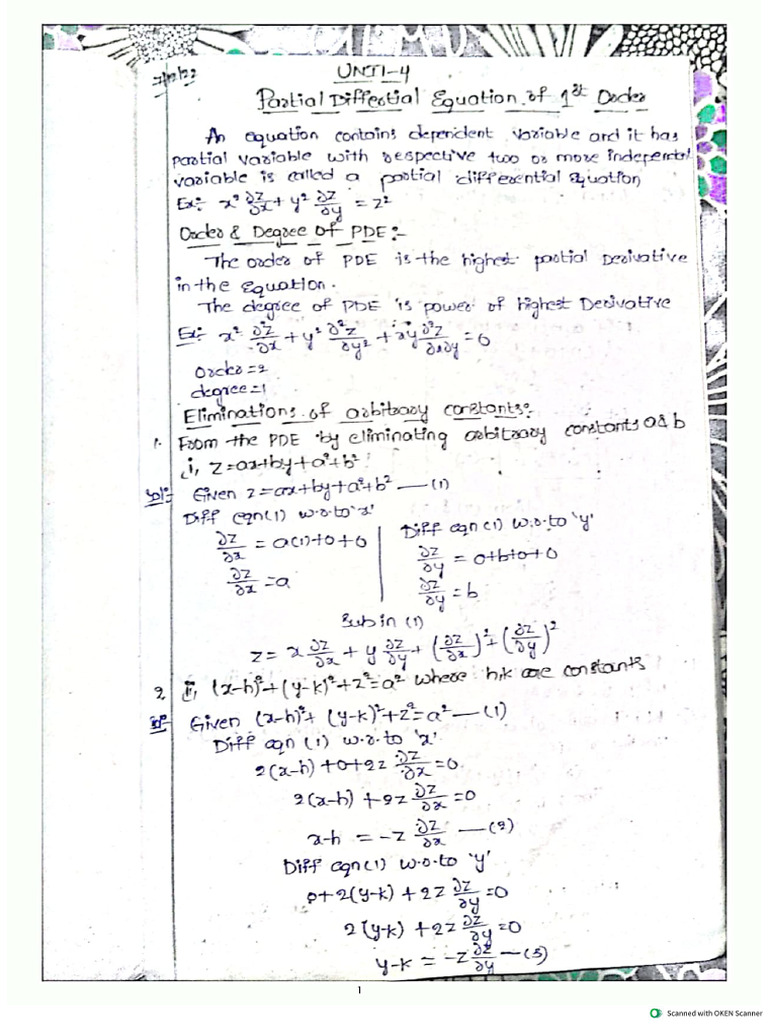 UNIT-4
Partial Diffential Equation of 1st Order
An equation contains dependent variable and it has
partial variable with respective two or more independent
variable is called a partial differential Equation
Ex:- x² ∂z/∂x + y² ∂z/∂y = z²
Order & Degree of PDE:-
The order of PDE is the highest partial Derivative
in the Equation.
The degree of PDE is power of highest Derivative
Ex:- x² ∂²z/∂x + y² ∂²z/∂y² + xy ∂²z/∂x∂y = 0
Order=2
degree=1
Eliminations of arbitrary constants:
1. From the PDE by eliminating arbitrary constants a & b
i, z=ax+by+a²+b²
Sol:- Given z=ax+by+a²+b² —(1)
Diff eqn(1) w.r.to 'x'
∂z/∂x = a(1)+0+0
∂z/∂x = a
Diff eqn (1) w.r.to 'y'
∂z/∂y = 0+b+0+0
∂z/∂y = b
Sub in (1)
z = x ∂z/∂x + y ∂z/∂y + (∂z/∂x)² + (∂z/∂y)²
2 ii, (x-h)²+(y-k)²+z²=a² where h,k are constants
Sol:- Given (x-h)²+(y-k)²+z²=a² —(1)
Diff eqn (1) w.r.to 'x'
2(x-h)+0+2z ∂z/∂x =0
2(x-h) +2z ∂z/∂x =0
x-h = -z ∂z/∂x —(2)
Diff eqn(1) w.r.to 'y'
0+2(y-k)+2z ∂z/∂y =0
2(y-k) +2z ∂z/∂y =0
y-k = -z ∂z/∂y —(3)
1
Scanned with OKEN Scanner